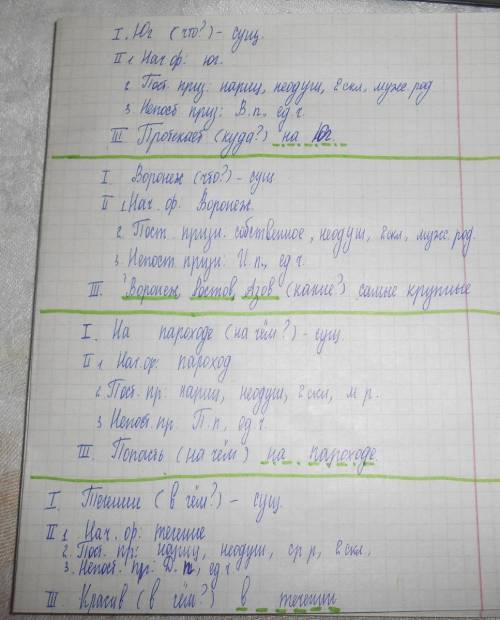 I. Юг (что?) – сущ.
II 1. Нач. ф: юг.
2. Пост. приз: нариц, неодуш, 2 скл, муж. род
3. Непост приз: В.п., ед ч.
III Протекает (куда?) на Юг.
I. Воронеж (что?) – сущ
II 1. Нач. ф: Воронеж.
2. Пост. призн. собственное, неодуш, 2 скл, муж. род.
3. Непост призн: И.п., ед ч.
III. Воронеж, Ростов, Азов (какие?) самые крупные
I. На пароходе (на чём?) – сущ.
II 1 Нач. ф: пароход
2. Пост. пр: нариц, неодуш, 2 скл, м р.
3 Непост. пр. П.п., ед ч.
III. Попасть (на чём) на пароходе
I. Течении (в чём?) – сущ.
II 1 Нач. ф: течение
2. Пост. пр: нариц, неодуш, ср р, 2 скл,
3. Непост. пр: Д.п, ед ч
III Красив (в чём?) в течении